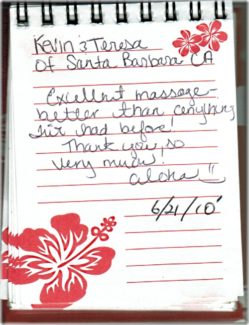 Kevin & Teresa
of Santa Barbara CA
Excellent massage -
better than anything
I've had before!
Thank you so
very much!
aloha
6/21/10